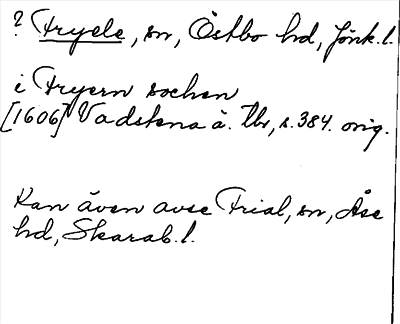 ? Fryele, sn, Östbo hd, Jönk. l.
i Fryern sochen
[1606] Vadstena ä. tbr, s. 384. orig.
Kan även avse Frial, sn, Åse
hd, Skarab. l.